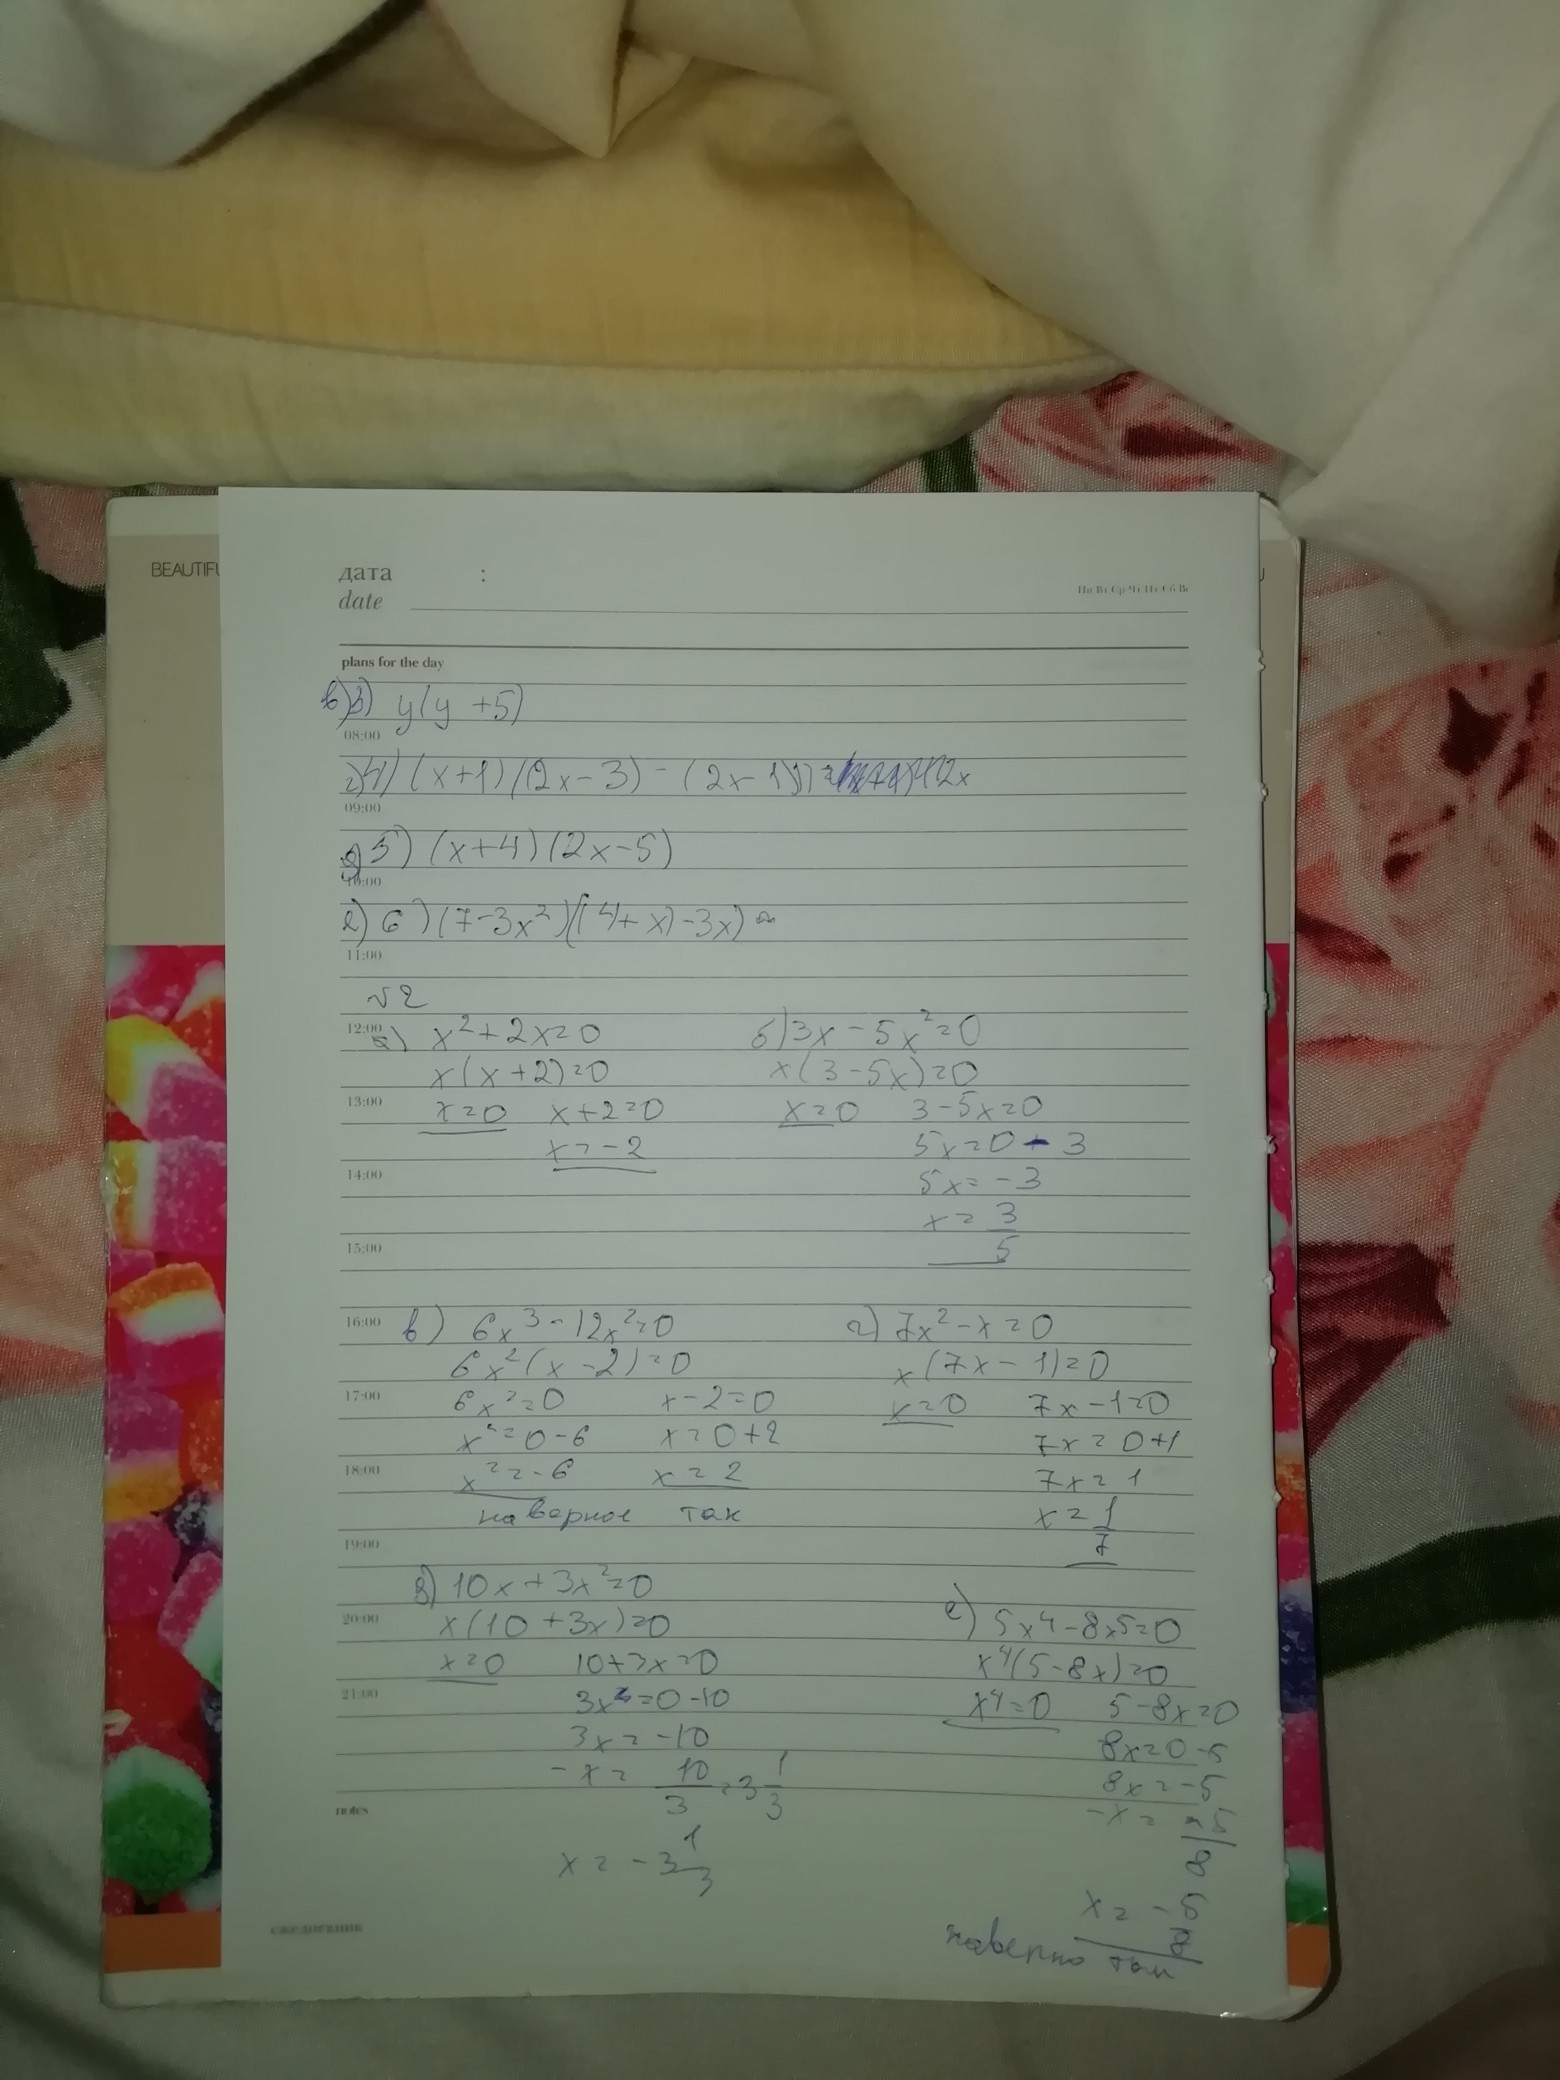 BEAUTIFU
дата :
date
Пн Вт Ср Чт Пт Сб Вс
plans for the day
в)3) y(y+5)
08:00
г)4) (x+1)(2x-3)-(2x-1)
09:00
д)5) (x+4)(2x-5)
10:00
е)6) (7-3x²)((4+x)-3x)=
11:00
√2
12:00
а) x²+2x=0 б) 3x-5x²=0
x(x+2)=0 x(3-5x)=0
13:00
x=0 x+2=0 x=0 3-5x=0
x=-2 5x=0-3
14:00
5x=-3
x=3/5
15:00
16:00
в) 6x³-12x²=0 г) 7x²-x=0
6x²(x-2)=0 x(7x-1)=0
17:00
6x²=0 x-2=0 x=0 7x-1=0
x²=0-6 x=0+2 7x=0+1
18:00
x²=-6 x=2 7x=1
наверное так x=1/7
19:00
д) 10x+3x²=0
20:00
x(10+3x)=0 е) 5x4-8x5=0
x=0 10+3x=0 x4(5-8x)=0
21:00
3x=0-10 x4=0 5-8x=0
3x=-10 8x=0-5
-x=10/3=3 1/3 8x=-5
notes
-x=-5/8
x=-3 1/3
x=-5/8
ежедневник
наверно так